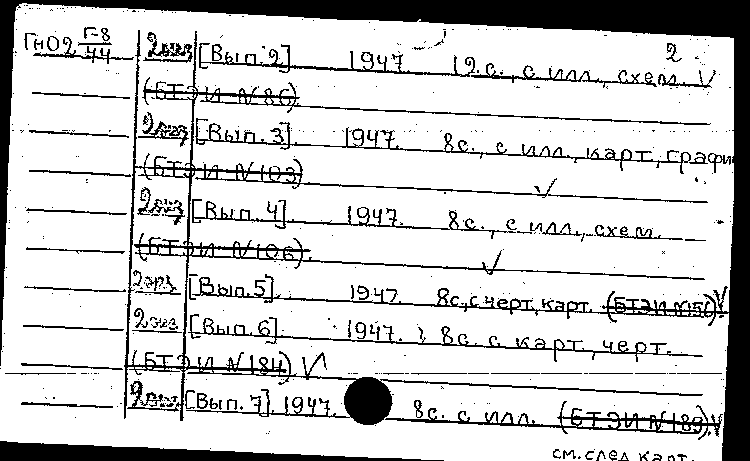 2
ГнО2 Г-8/44 2экз [Вып. 2] 1947 12 с., с илл., схем. V
(БТЭИ N 86)
2экз [Вып. 3] 1947. 8с., с илл., карт, графи
(БТЭИ N 103) V
2экз [Вып. 4] 1947. 8с., с илл., схем.
(БТЭИ N 106). V
2экз [Вып. 5] 1947. 8с., с черт, карт. (БТЭИ N 150) V
2экз [Вып. 6] 1947. 8с. с карт, черт.
(БТЭИ N 184) V
2экз [Вып. 7] 1947. 8с. с илл. (БТЭИ N 189). V
см. след карт.